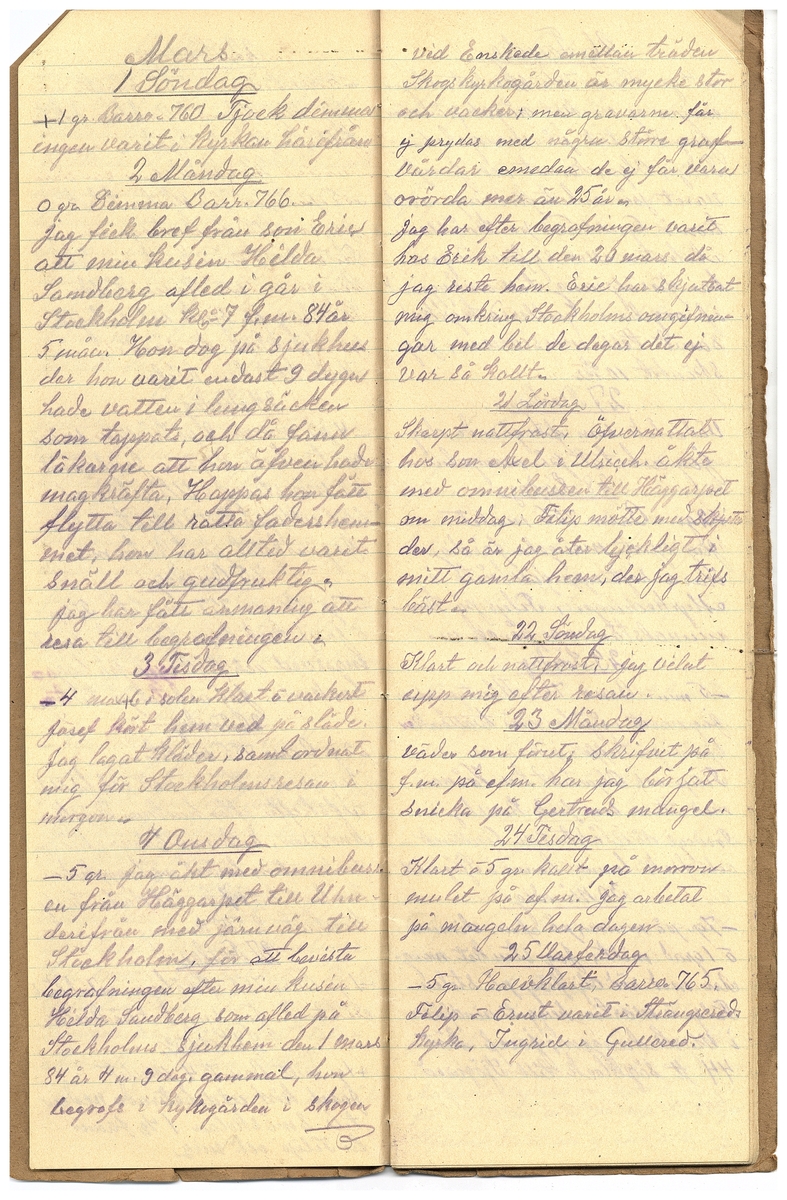 Mars
1 Söndag
+1 gr. Barro. 760 Tjock dimma
ingen varit i kyrkan härifrån
2 Måndag
0 gr. Dimma Barr. 766.
jag fick bref från son Eric
att min kusin Hilda
Sandberg afled i går i
Stockholm kl. 7 f.m. 84 år
5 mån. Hon dog på sjukhus
der hon varit endast 9 dygn
hade vatten i lungsäcken
som tappats, och då fann
läkarne att hon äfven hade
magkräfta. Hoppas hon fått
flytta till rätta fadershem-
met, hon har alltid varit
snäll och gudfruktig.
jag har fått armaning att
resa till begrafningen.
3 Tisdag
-4 max +6 i solen Klart o vackert
Josef kört hem ved på släde.
jag lagat kläder, samt ordnat
mig för Stockholmsresan i
morgon.
4 Onsdag
-5 gr. jag åkt med omnibuss-
en från Häggarpet till Uhn-
derifrån med järnväg till
Stockholm, för att bevista
begrafningen efter min kusin
Hilda Sandberg som afled på
Stockholms sjukhem den 1 mars
84 år 4 m. 9 dag. gammal, hon
begrofs i kykogården i skogen
ved Enskede emellan träden
Skogskyrkogården är mycke stor
och vacker, men gravarne får
ej prydas med några större graf-
vårdar emedan de ej får vara
orörda mer än 25 år.
Jag har efter begrafningen varit
hos Erik till den 20 mars då
jag reste hem. Eric har skjutsat
mig omkring Stockholms omgifnin-
gar med bil de dagar det ej
var så kallt.
21 Lördag
Skarpt nattfrost. Öfvernattat
hos son Axel i Ulriceh. åkte
med omnibussen till Häggarpet
om middag. Filip mötte med
der, så är jag åter lyckligt i
mitt gamla hem, der jag trifs
bäst.
22 Söndag
Klart och nattfrost, jag vilat
upp mig efter resan.
23 Måndag
väder som förut, skrifvet på
f.m. på ef.m. har jag börjat
snicka på Gertruds mangel.
24 Tisdag
Klart o 5 gr. kallt på morron
mulet på ef.m. jag arbetat
på mangeln hela dagen
25 Varferdag
-5 gr. Halvklart, barro 765.
Filip o Ernst varit i Strängsereds
Kyrka, Ingrid i Gullered.